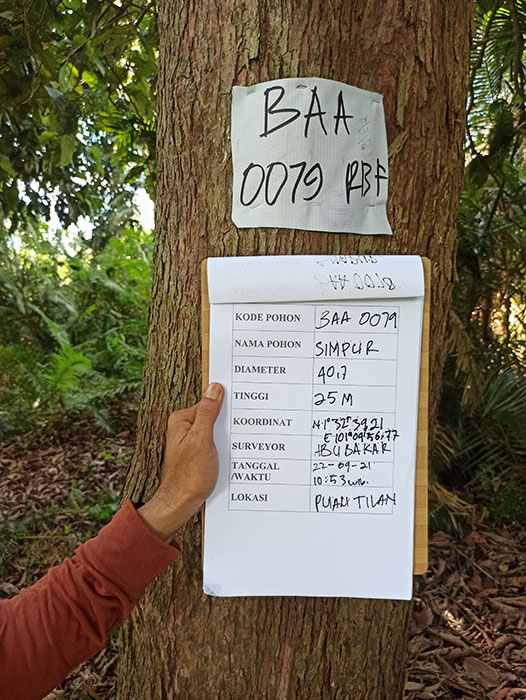 BAA
0079 RBF
KODE POHON BAA 0079
NAMA POHON SIMPUR
DIAMETER 40,7
TINGGI 25 M
KOORDINAT N 1° 32' 39,21
E 101° 09' 56,77
SURVEYOR ABUBAKAR
TANGGAL 22-09-21
/WAKTU 10:53 WIB.
LOKASI TILAN